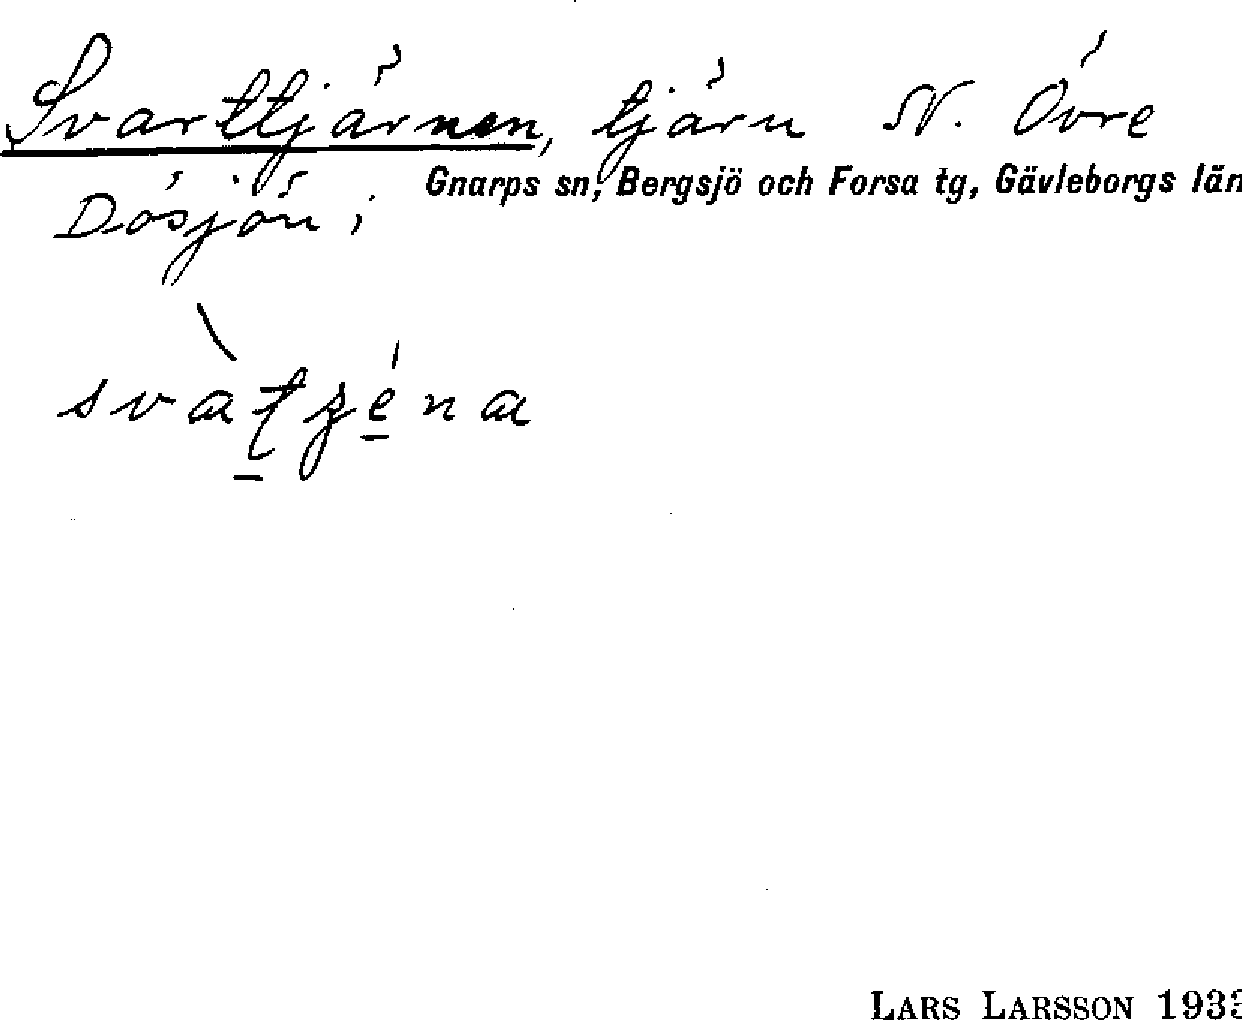 Svarttjärnen, tjärn N. Övre
Gnarps sn, Bergsjö och Forsa tg, Gävleborgs län
Dösjön i
LARS LARSSON 1933